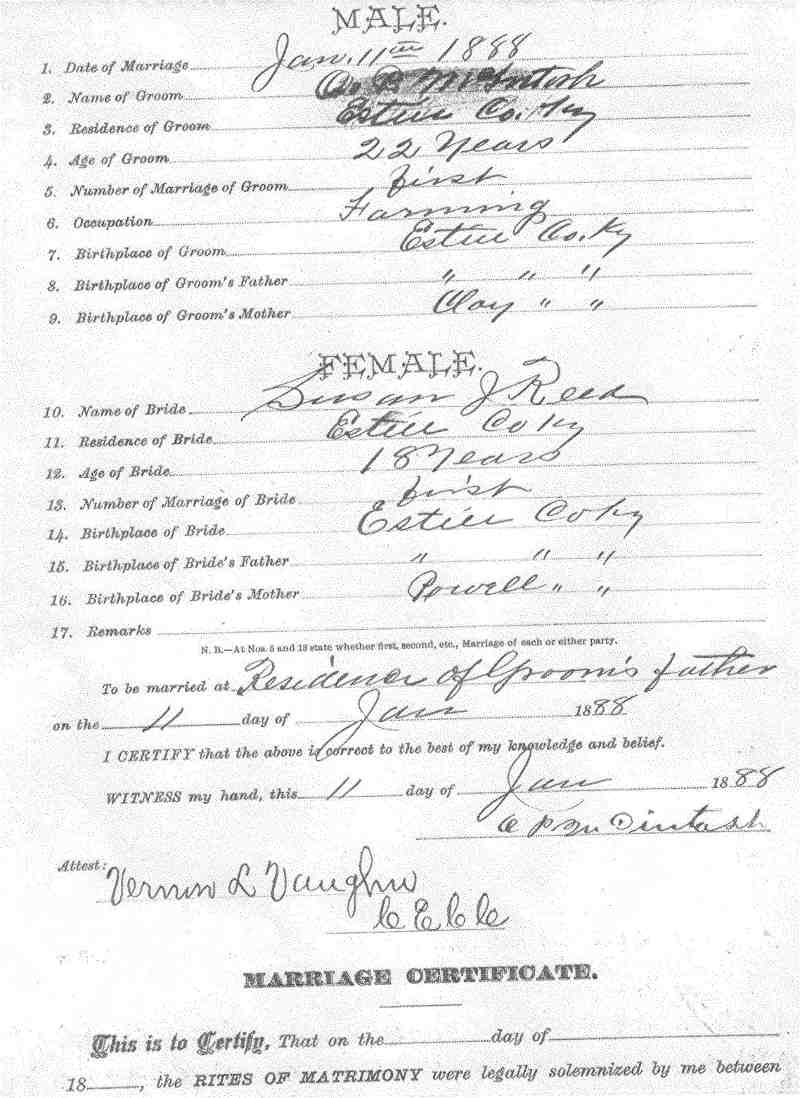 MALE.
1. Date of Marriage Jan. 11th 1888
2. Name of Groom P. McIntosh
3. Residence of Groom Estill Co. Ky
4. Age of Groom 22 Years
5. Number of Marriage of Groom first
6. Occupation Farming
7. Birthplace of Groom Estill Co. Ky
8. Birthplace of Groom's Father " " "
9. Birthplace of Groom's Mother Clay " "
FEMALE.
10. Name of Bride Susan J Reed
11. Residence of Bride Estill Co Ky
12. Age of Bride 18 Years
13. Number of Marriage of Bride first
14. Birthplace of Bride Estill Co Ky
15. Birthplace of Bride's Father " " "
16. Birthplace of Bride's Mother Powell " "
17. Remarks
N. B.—At Nos. 5 and 13 state whether first, second, etc., Marriage of each or either party.
To be married at Residence of Groom's father
on the 11 day of Jan 1888
I CERTIFY that the above is correct to the best of my knowledge and belief.
WITNESS my hand, this 11 day of Jan 1888
P McIntosh
Attest:
Vernon L Vaughn
C E C C
MARRIAGE CERTIFICATE.
This is to Certify, That on the day of
18 , the RITES OF MATRIMONY were legally solemnized by me between